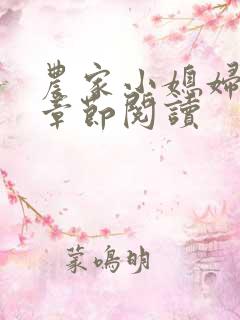 農家小媳婦
章節閱讀
蒙鳴明